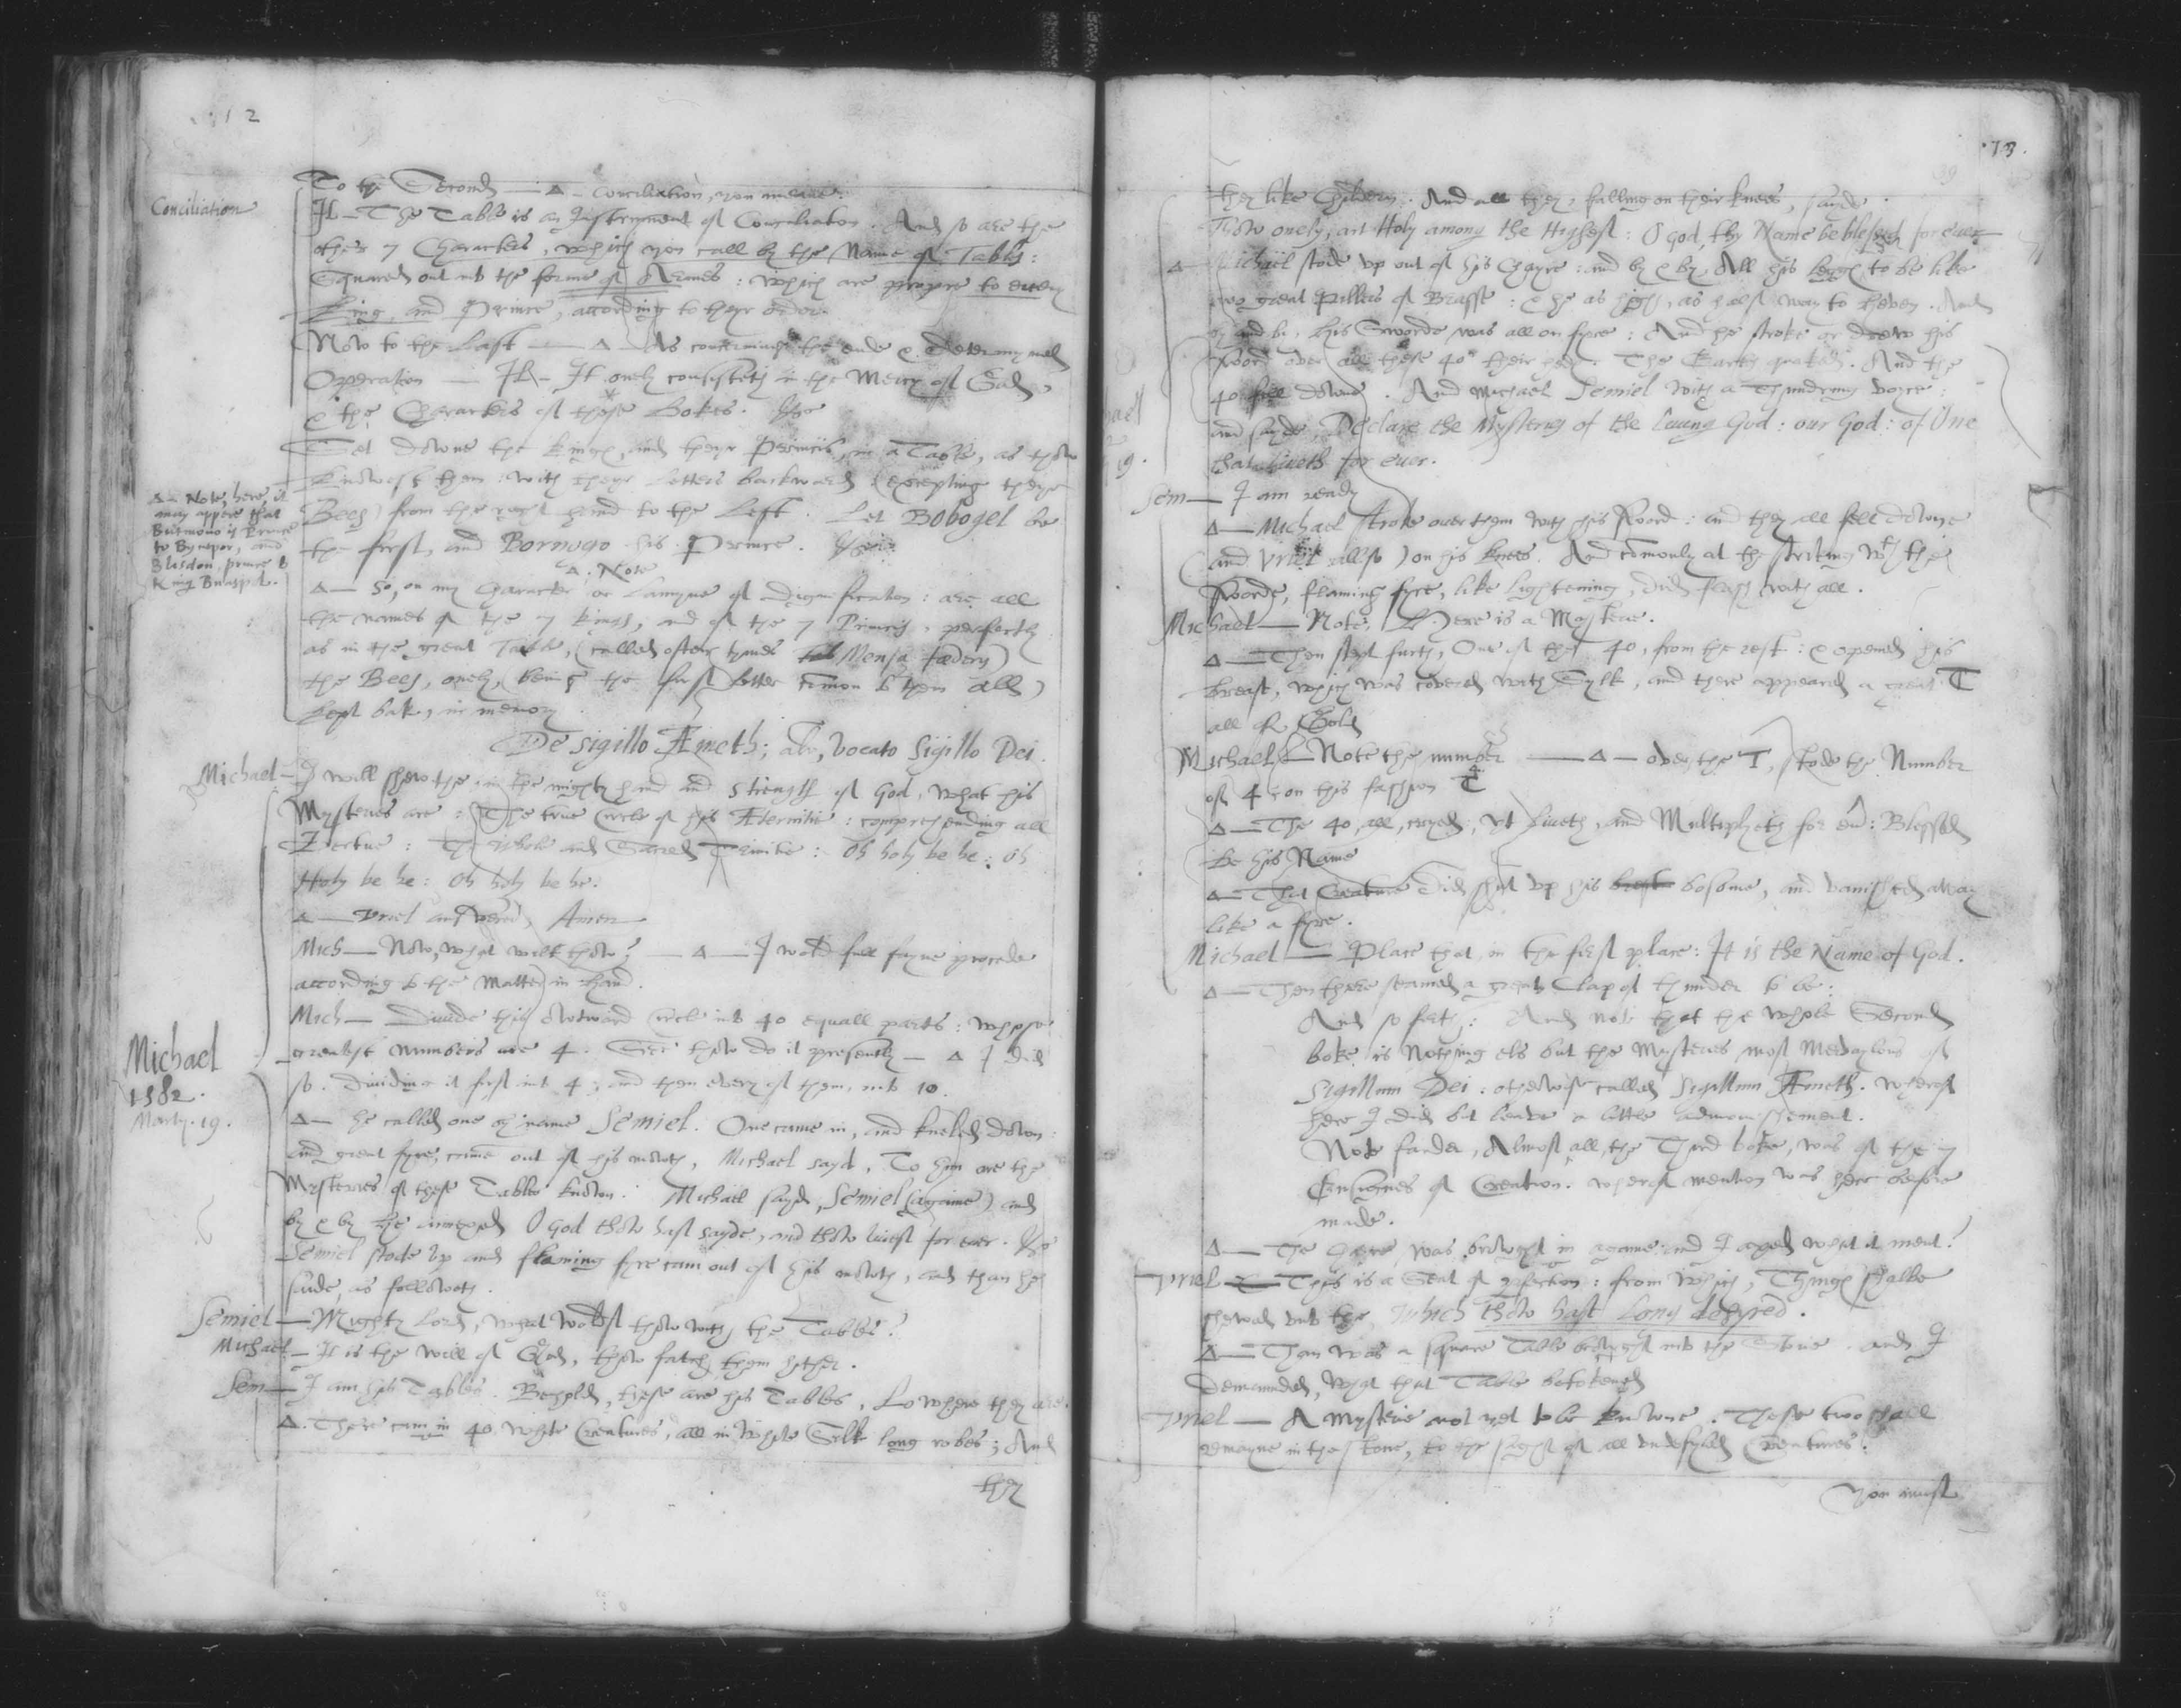 12
Conciliation
To the Second — Δ – Conciliation, you meane.
Il – The Table is an Instrument of Conciliation. And so are the
other 7 Characters, which you call by the Name of Tables:
Squared out into the forme of Armes: which are propre to every
King, and Prince, according to theyr order.
Now to the Last — Δ — As concerning the ende & determyned
Operation — Il – It onely consisteth in the Mercy of God,
& the Characters of these bokes.
Set downe the kings, and theyr Princes, in a Table, as thow
knowest them: with theyr letters backward (excepting theyr
Δ – Note, here it
may appere that
Butmono is Prince
to Bynepor, and
Blisdon, prince to
King Bnaspol.
Bees) from the right hand to the Left. Let Bobogel be
the first, and Bornogo his Prince.
Δ. Note
Δ — So, on my Character or Lamyne of Dignification: are all
the names of the 7 kings, and of the 7 Princes, perfectly
as in the great Table, (called often tymes Mensa fœderis)
the Bees, onely, (being the first letter comon to them all)
kept bak, in memory.
De sigillo Æmeth; alio, vocato Sigillo Dei.
Michael — I will shew the in the mighty hand and strength of God, what his
Mysteries are: The true Circle of his Æternitie: comprehending all
Vertue: The whole and Sacred Trinitie: Oh holy be he: Oh
Holy be he: Oh holy be he.
Δ — Vriel answered, Amen
Mich — Now, what wilt thow? — Δ — I wold full fayne procede
according to the Matter in hand.
Mich — Diuide this outward circle into 40 equall parts: whose
greatest numbers are 4. See thow do it presently — Δ I did
so. Diuiding it first into 4; and then every of them, into 10.
Michael
1582.
Martij. 19.
Δ — he called one by name Semiel. One came in, and kneled down:
and great fyre, came out of his mowth, Michael sayd, To him are the
Mysteries of these Tables known. Michael sayde, Semiel (agayne) and
by & by he answered O God thow hast sayde, and thow liuest for ever.
Semiel stode vp and flaming fyre cam out of his mowth, and than he
sayde, as followeth.
Semiel — Mighty Lord, what woldst thow with the Tables?
Michael — It is the will of God, thow fatch them hither.
Sem — I am his Tables. Behold, these are his Tables, Lo where they are.
Δ. There cam in 40 white Creatures, all in white Sylk long robes; And
they
73.
they like Chyldern: And all they, falling on their knees, sayde.
Thow onely, art Holy among the Highest: O God, thy Name be blessed for euer.
Δ — Michael stode vp out of his Chayre: and by & by, All his leggs to be like
two great Pillers of Brasse: & he as high, as half way to heven. And
by and by, his Sworde was all on fyre: And he stroke or drew his
sword over all these 40 their heds. The Earth quaked. And the
40 fell downe. And Michael Semiel with a Thundring voyce:
and sayde, Declare the Mysteries of the liuing God: our God: of One
that liueth for euer.
Sem — I am ready
Δ — Michael stroke over them with his sword: and they all fell downe
(and Vriel allso) on his knees. And comonly at the striking with the
sworde, flaming fyre, like lightening, did flash with all.
Michael — Note: Here is a Mysterie.
Δ — Then stept furth, One of the 40, from the rest: & opened his
breast, which was covered with Sylk, and there appeared a great T
all of Gold
Michael — Note the number — Δ — over the T, stode the Number
of 4, on this fashion 4 T
Δ — The 40, all, cryed; Yt liueth, and Multiplyeth for euer: Blessed
be his Name
Δ — That Creature did shut vp his brest bosome, and vanished away
like a fyre.
Michael — Place that, in the first place: It is the Name of God.
Δ — Then there semed a great Clap of thunder to be:
And so furth: And note that the whole Second
boke is Nothing els but the Mysteries most Mervaylous of
Sigillum Dei: otherwise called Sigillum Æmeth. wherof
here I did but leave a little admonishement.
Note farder, Almost all, the Third boke, was of the 7
Ensignes of Creation. wherof mention was here before
made.
Δ — The Chayre was browght in agayne: and I axed what it ment?
Vriel — This is a Seat of perfection: from which, Things shalbe
shewed vnto the, which thow hast long desyred.
Δ — Than was a square Table browght into the Stone: and I
demaunded, what that Table betokened
Vriel — A Mysterie not yet to be knowne. These two shall
remayne in the stone, to the sight of all vndefyled Creatures.
You must